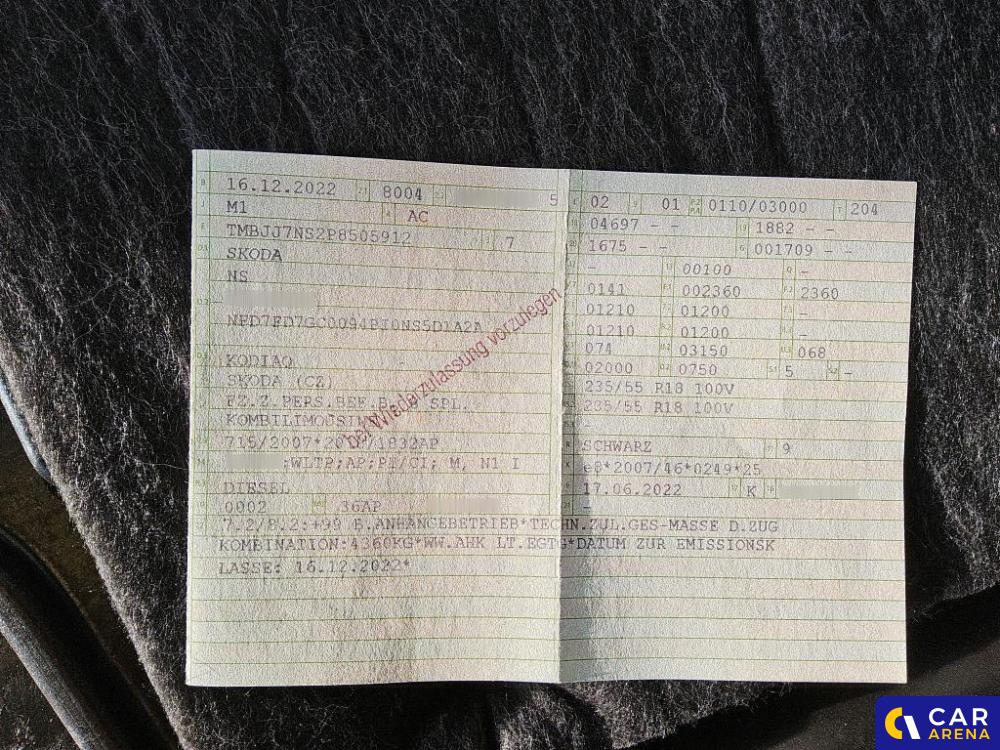 B 16.12.2022 2.1 8004 5
J M1 4 AC
E TMBJJ7NS2P8505912 3 7
D.1 SKODA
NS
D.2
NFD7FD7GC0094BI0NS5D1A2A
D.3 KODIAQ -
SKODA (CZ)
FZ.Z.PERS.BEF.B. SPL.
KOMBILIMOUSINE
715/2007*2018/1832AP
;WLTP;AP;PI/CI; M, N1 I
DIESEL
0002 36AP
7.2/8.2:+99 B.ANHÄNGEBETRIEB*TECHN.ZUL.GES-MASSE D.ZUG
KOMBINATION:4360KG*WW.AHK LT.EGTG*DATUM ZUR EMISSIONSK
LASSE: 16.12.2022*
bei Wiederzulassung vorzulegen
02 01 P.2 P.4 0110/03000 T 204
04697 - - 1882 - -
1675 - - G 001709 - -
- 00100 Q -
0141 F.1 002360 F.2 2360
01210 01200 -
01210 01200 -
074 U.2 03150 U.3 068
02000 O.2 0750 S.1 5 S.2 -
235/55 R18 100V
235/55 R18 100V
-
R SCHWARZ 9
K e8*2007/46*0249*25
6 17.06.2022 17 K
-
CAR
ARENA